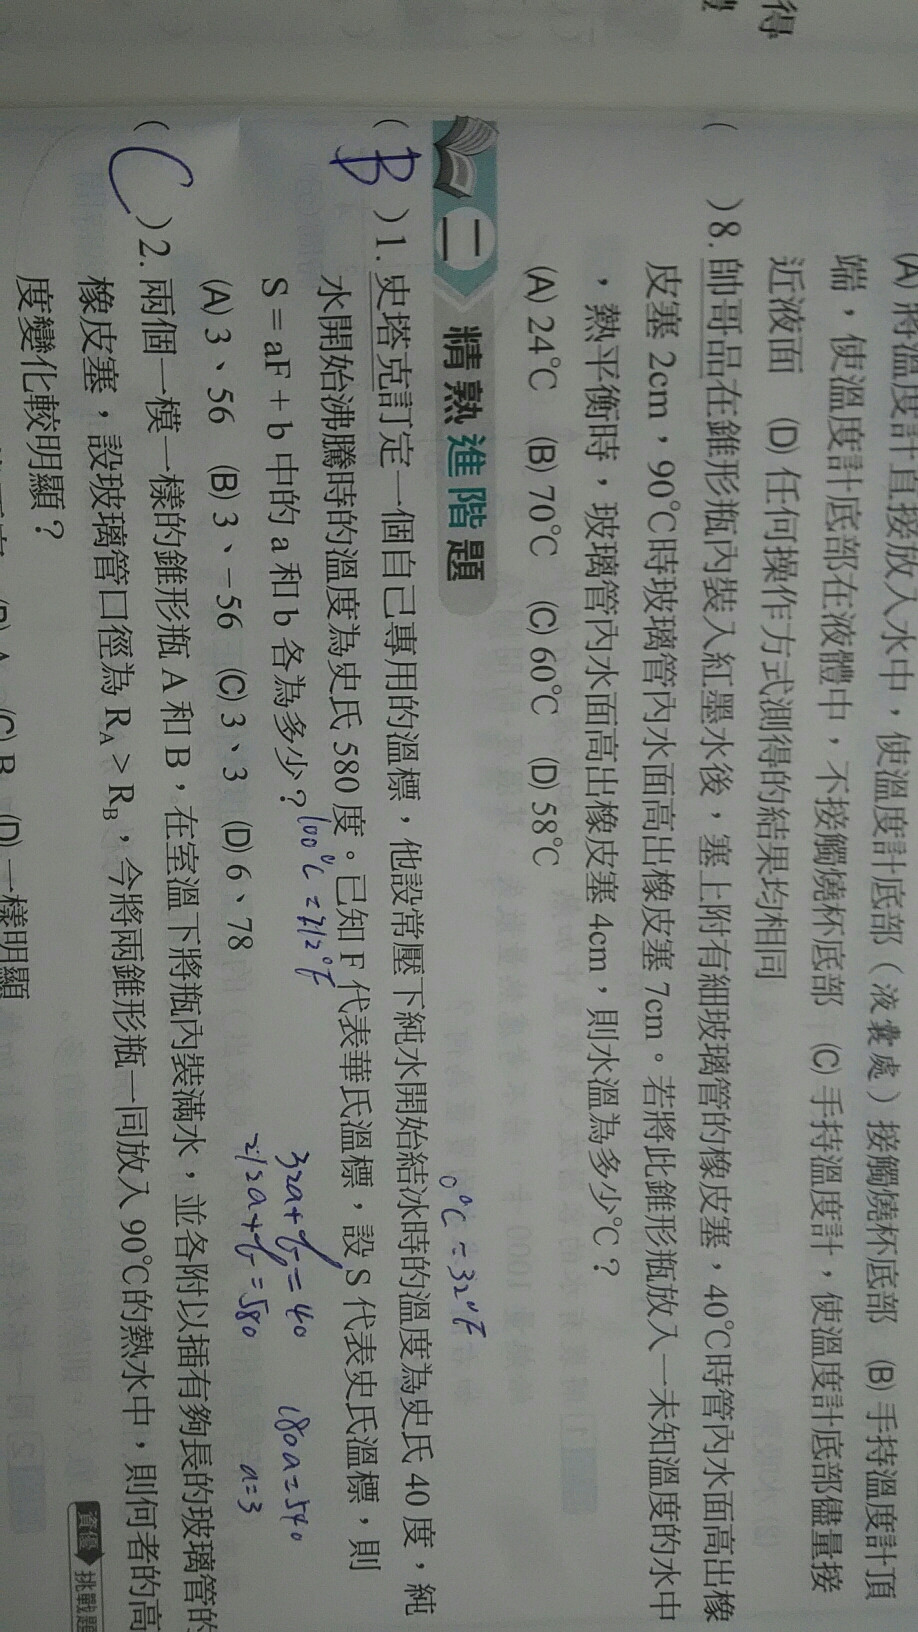 得
(A) 將溫度計直接放入水中，使溫度計底部（液囊處）接觸燒杯底部 (B) 手持溫度計頂
端，使溫度計底部在液體中，不接觸燒杯底部 (C) 手持溫度計，使溫度計底部儘量接
近液面 (D) 任何操作方式測得的結果均相同
( )8. 帥哥品在錐形瓶內裝入紅墨水後，塞上附有細玻璃管的橡皮塞，40℃時管內水面高出橡
皮塞 2cm，90℃時玻璃管內水面高出橡皮塞 7cm。若將此錐形瓶放入一未知溫度的水中
，熱平衡時，玻璃管內水面高出橡皮塞 4cm，則水溫為多少℃？
(A) 24℃ (B) 70℃ (C) 60℃ (D) 58℃
二 精熟進階題
0℃=32°F
(B)1. 史塔克訂定一個自己專用的溫標，他設常壓下純水開始結冰時的溫度為史氏 40 度，純
水開始沸騰時的溫度為史氏 580 度。已知 F 代表華氏溫標，設 S 代表史氏溫標，則
S＝aF＋b 中的 a 和 b 各為多少？
100℃=212°F
32a+b=40
212a+b=580
180a=540
a=3
(A) 3、56 (B) 3、−56 (C) 3、3 (D) 6、78
(C)2. 兩個一模一樣的錐形瓶 A 和 B，在室溫下將瓶內裝滿水，並各附以插有夠長的玻璃管的
橡皮塞，設玻璃管口徑為 RA＞RB，今將兩錐形瓶一同放入 90℃的熱水中，則何者的高
度變化較明顯？
資優 挑戰題
(B) A (C) B (D) 一樣明顯